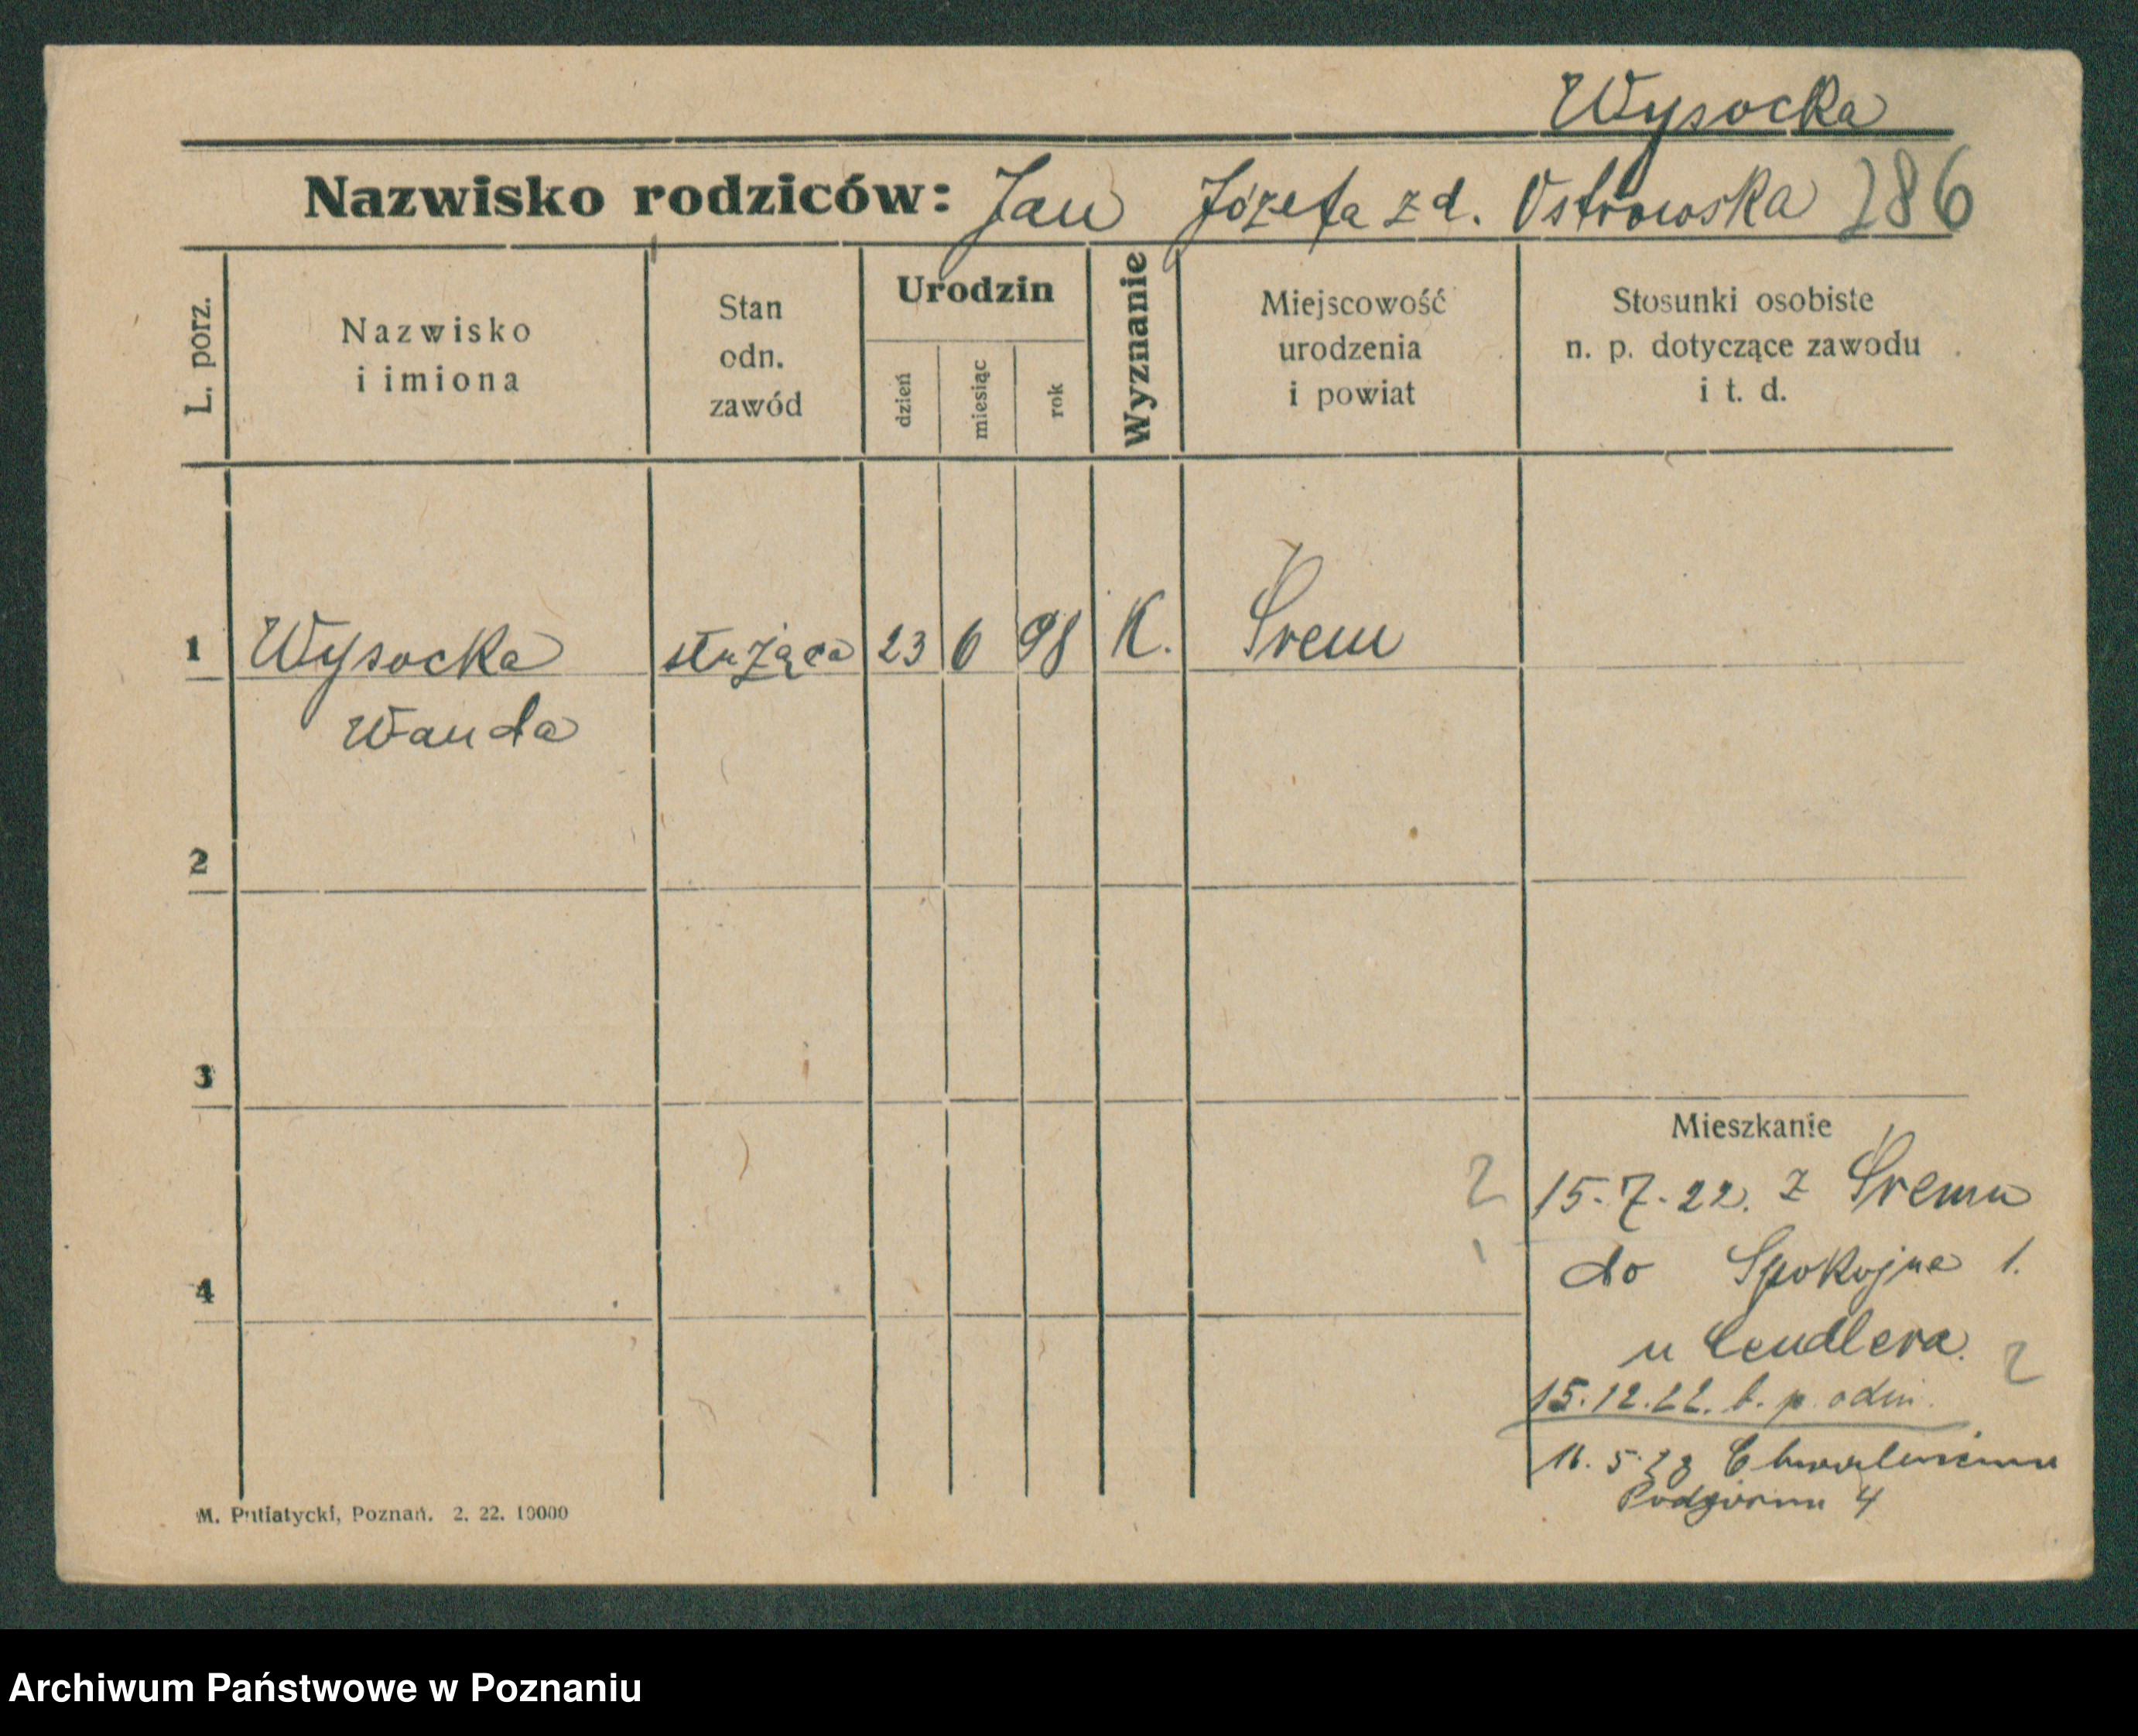 Wysocka
Nazwisko rodziców: Jan Józefa z d. Ostrowska 286
L. porz.
Nazwisko
i imiona
Stan
odn.
zawód
Urodzin
dzień
miesiąc
rok
Wyznanie
Miejscowość
urodzenia
i powiat
Stosunki osobiste
n. p. dotyczące zawodu
i t. d.
1 Wysocka służąca 23 6 98 K. Śrem
Wanda
2
3
Mieszkanie
15-7-22. z Śremu
do Spokojna 1.
4
u Cendlera.
15.12.22. b. p. odm.
5.28
Podgórna 4
M. Putiatycki, Poznań. 2. 22. 10000
Archiwum Państwowe w Poznaniu